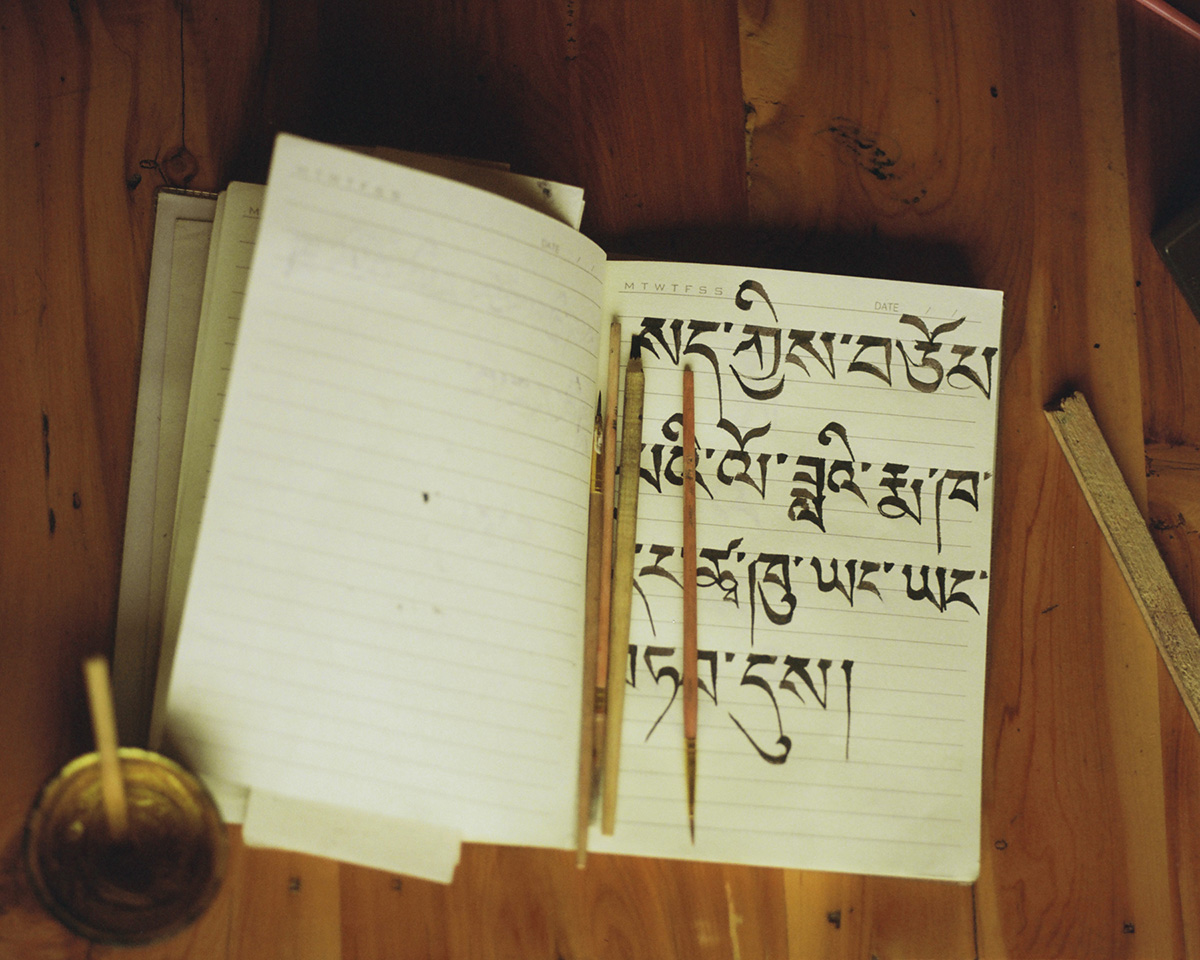 MTWTFSS
DATE / /
MTWTFSS
DATE / /
སད་ཀྱིས་བཅོམ
པའི་ལོ་ཟླའི་རྨ་ཁ་
ཚྭ་ཁུ་ཡང་ཡང་
གཏབ་དུས།